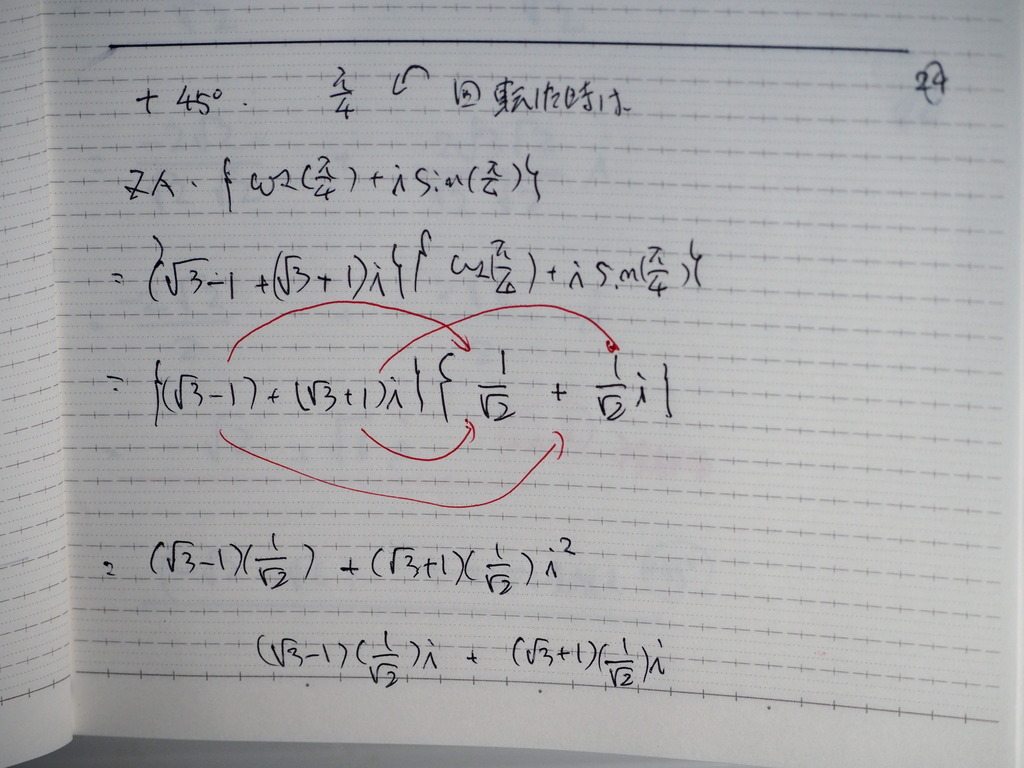 24
+ 45°. π/4 回転した時は
ZA・{cos(π/4) + i sin(π/4)}
= {√3-1 + (√3+1)i}{cos(π/4) + i sin(π/4)}
= {(√3-1) + (√3+1)i}{1/√2 + 1/√2 i}
= (√3-1)(1/√2) + (√3+1)(1/√2)i²
(√3-1)(1/√2)i + (√3+1)(1/√2)i